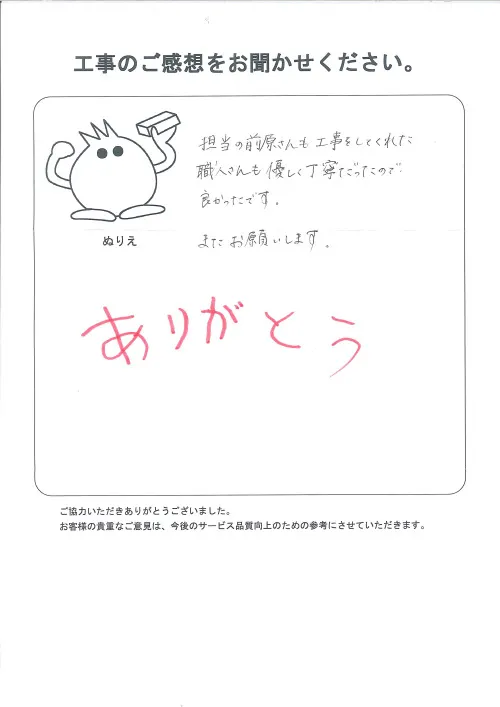 工事のご感想をお聞かせください。
担当の前原さんも工事をしてくれた
職人さんも優しく丁寧だったので
良かったです。
またお願いします。
ぬりえ
ありがとう
ご協力いただきありがとうございました。
お客様の貴重なご意見は、今後のサービス品質向上のための参考にさせていただきます。